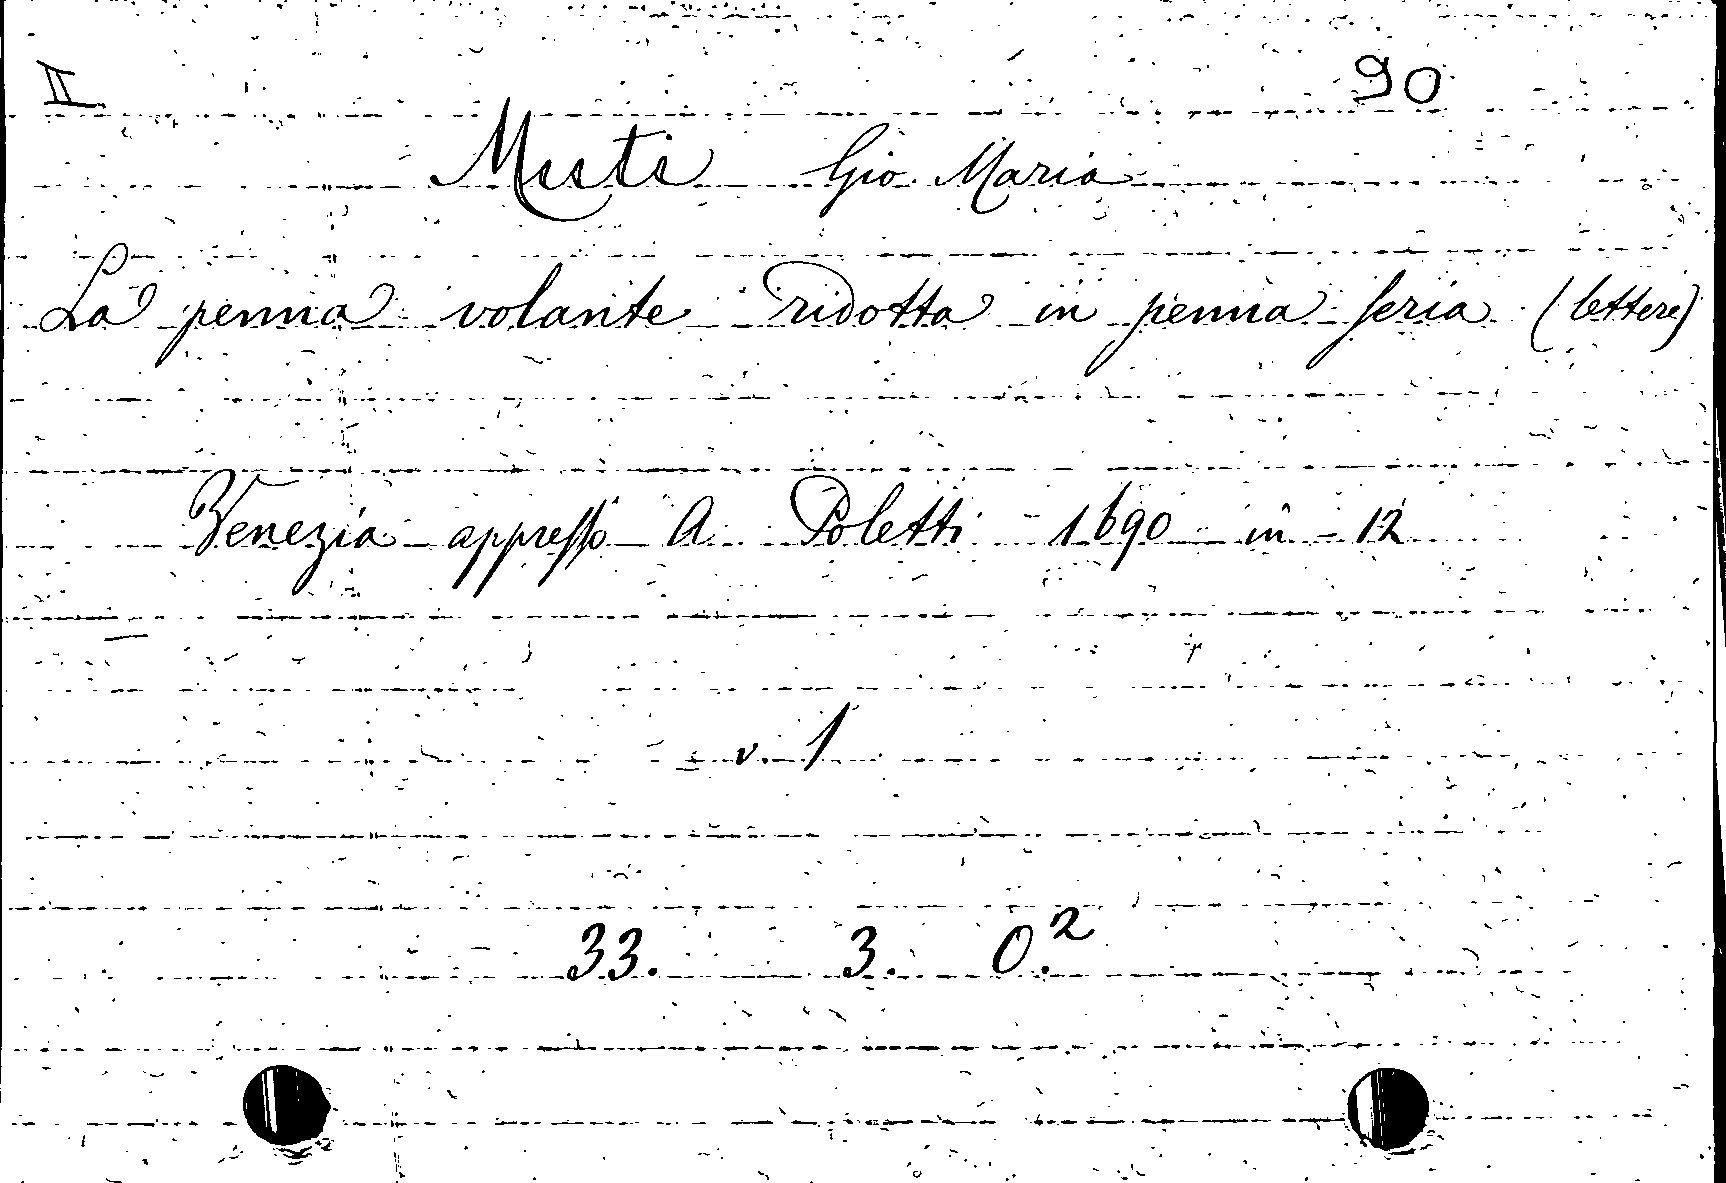 II 90
Muti Gio. Maria
La penna volante ridotta in penna seria (lettere)
Venezia appresso A. Poletti 1690 in 12
v. 1
33. 3. O.²